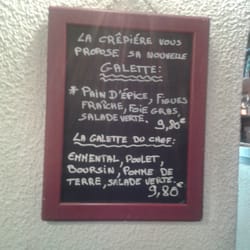 LA CRÊPIÉRE VOUS
PROPOSE SA NOUVELLE
GALETTE:
* PAIN D'ÉPICE, FIGUES
FRAÎCHE, FOIE GRAS,
SALADE VERTE. 9,80€
LA GALETTE DU CHEF:
EMMENTAL, POULET,
BOURSIN, POMME DE
TERRE, SALADE VERTE.
9,80€